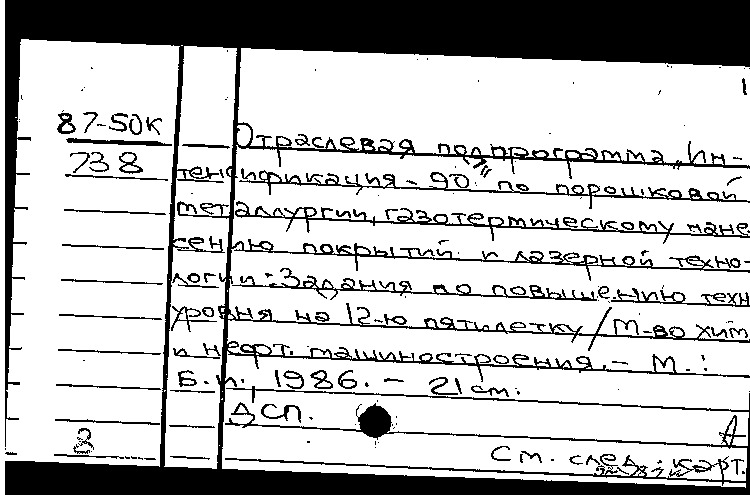 1
87-50К
738
Отраслевая подпрограмма „Ин-
тенсификация - 90" по порошковой
металлургии, газотермическому нане
сению покрытий и лазерной техно-
логии: Задания по повышению техн
уровня на 12-ю пятилетку/М-во хим
и нефт. машиностроения. - М.:
Б.и., 1986. - 21 см.
ДСП.
А
3
См. след. карт.